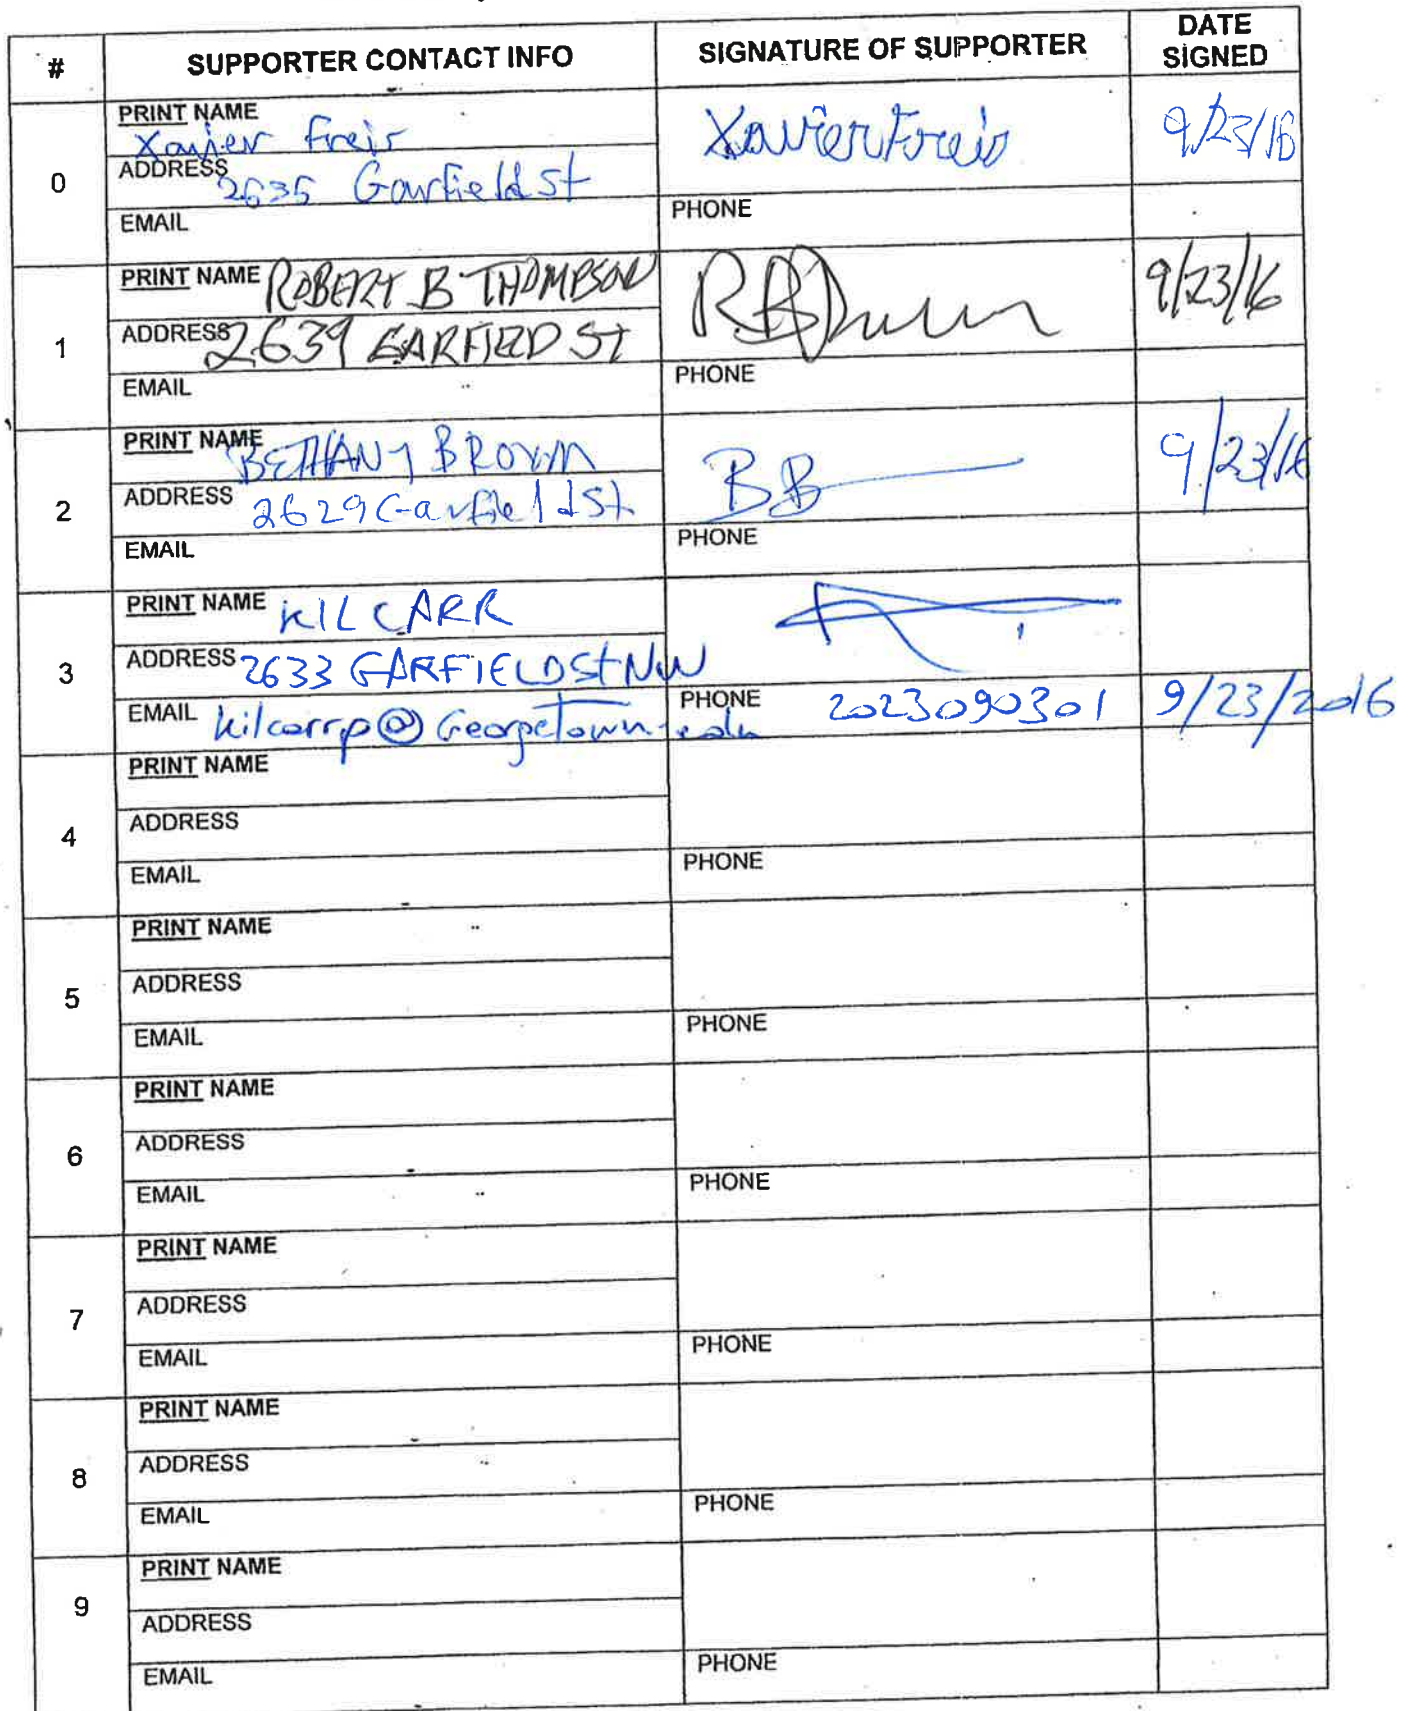 # SUPPORTER CONTACT INFO SIGNATURE OF SUPPORTER DATE SIGNED
0
PRINT NAME Xavier Freir
ADDRESS 2635 Garfield St
EMAIL
Xavier Freir
PHONE
9/23/16
1
PRINT NAME ROBERT B THOMPSON
ADDRESS 2639 GARFIELD ST
EMAIL
PHONE
9/23/16
2
PRINT NAME BETHANY BROWN
ADDRESS 2629 Garfield St
EMAIL
BB
PHONE
9/23/16
3
PRINT NAME KILCARR
ADDRESS 2633 GARFIELD St NW
EMAIL kilcarrp@Georgetown.edu
PHONE 2023090301
9/23/2016
4
PRINT NAME
ADDRESS
EMAIL
PHONE
5
PRINT NAME
ADDRESS
EMAIL
PHONE
6
PRINT NAME
ADDRESS
EMAIL
PHONE
7
PRINT NAME
ADDRESS
EMAIL
PHONE
8
PRINT NAME
ADDRESS
EMAIL
PHONE
9
PRINT NAME
ADDRESS
EMAIL
PHONE